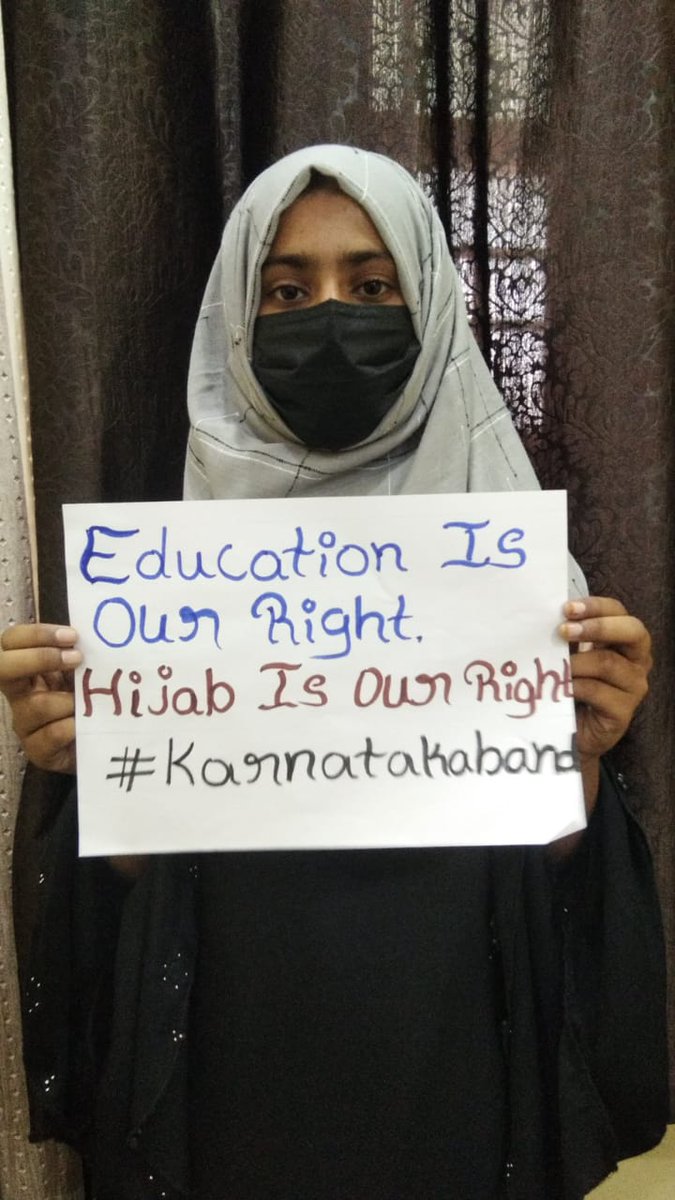 Education Is
Our Right.
Hijab Is Our Right
#Karnatakaband